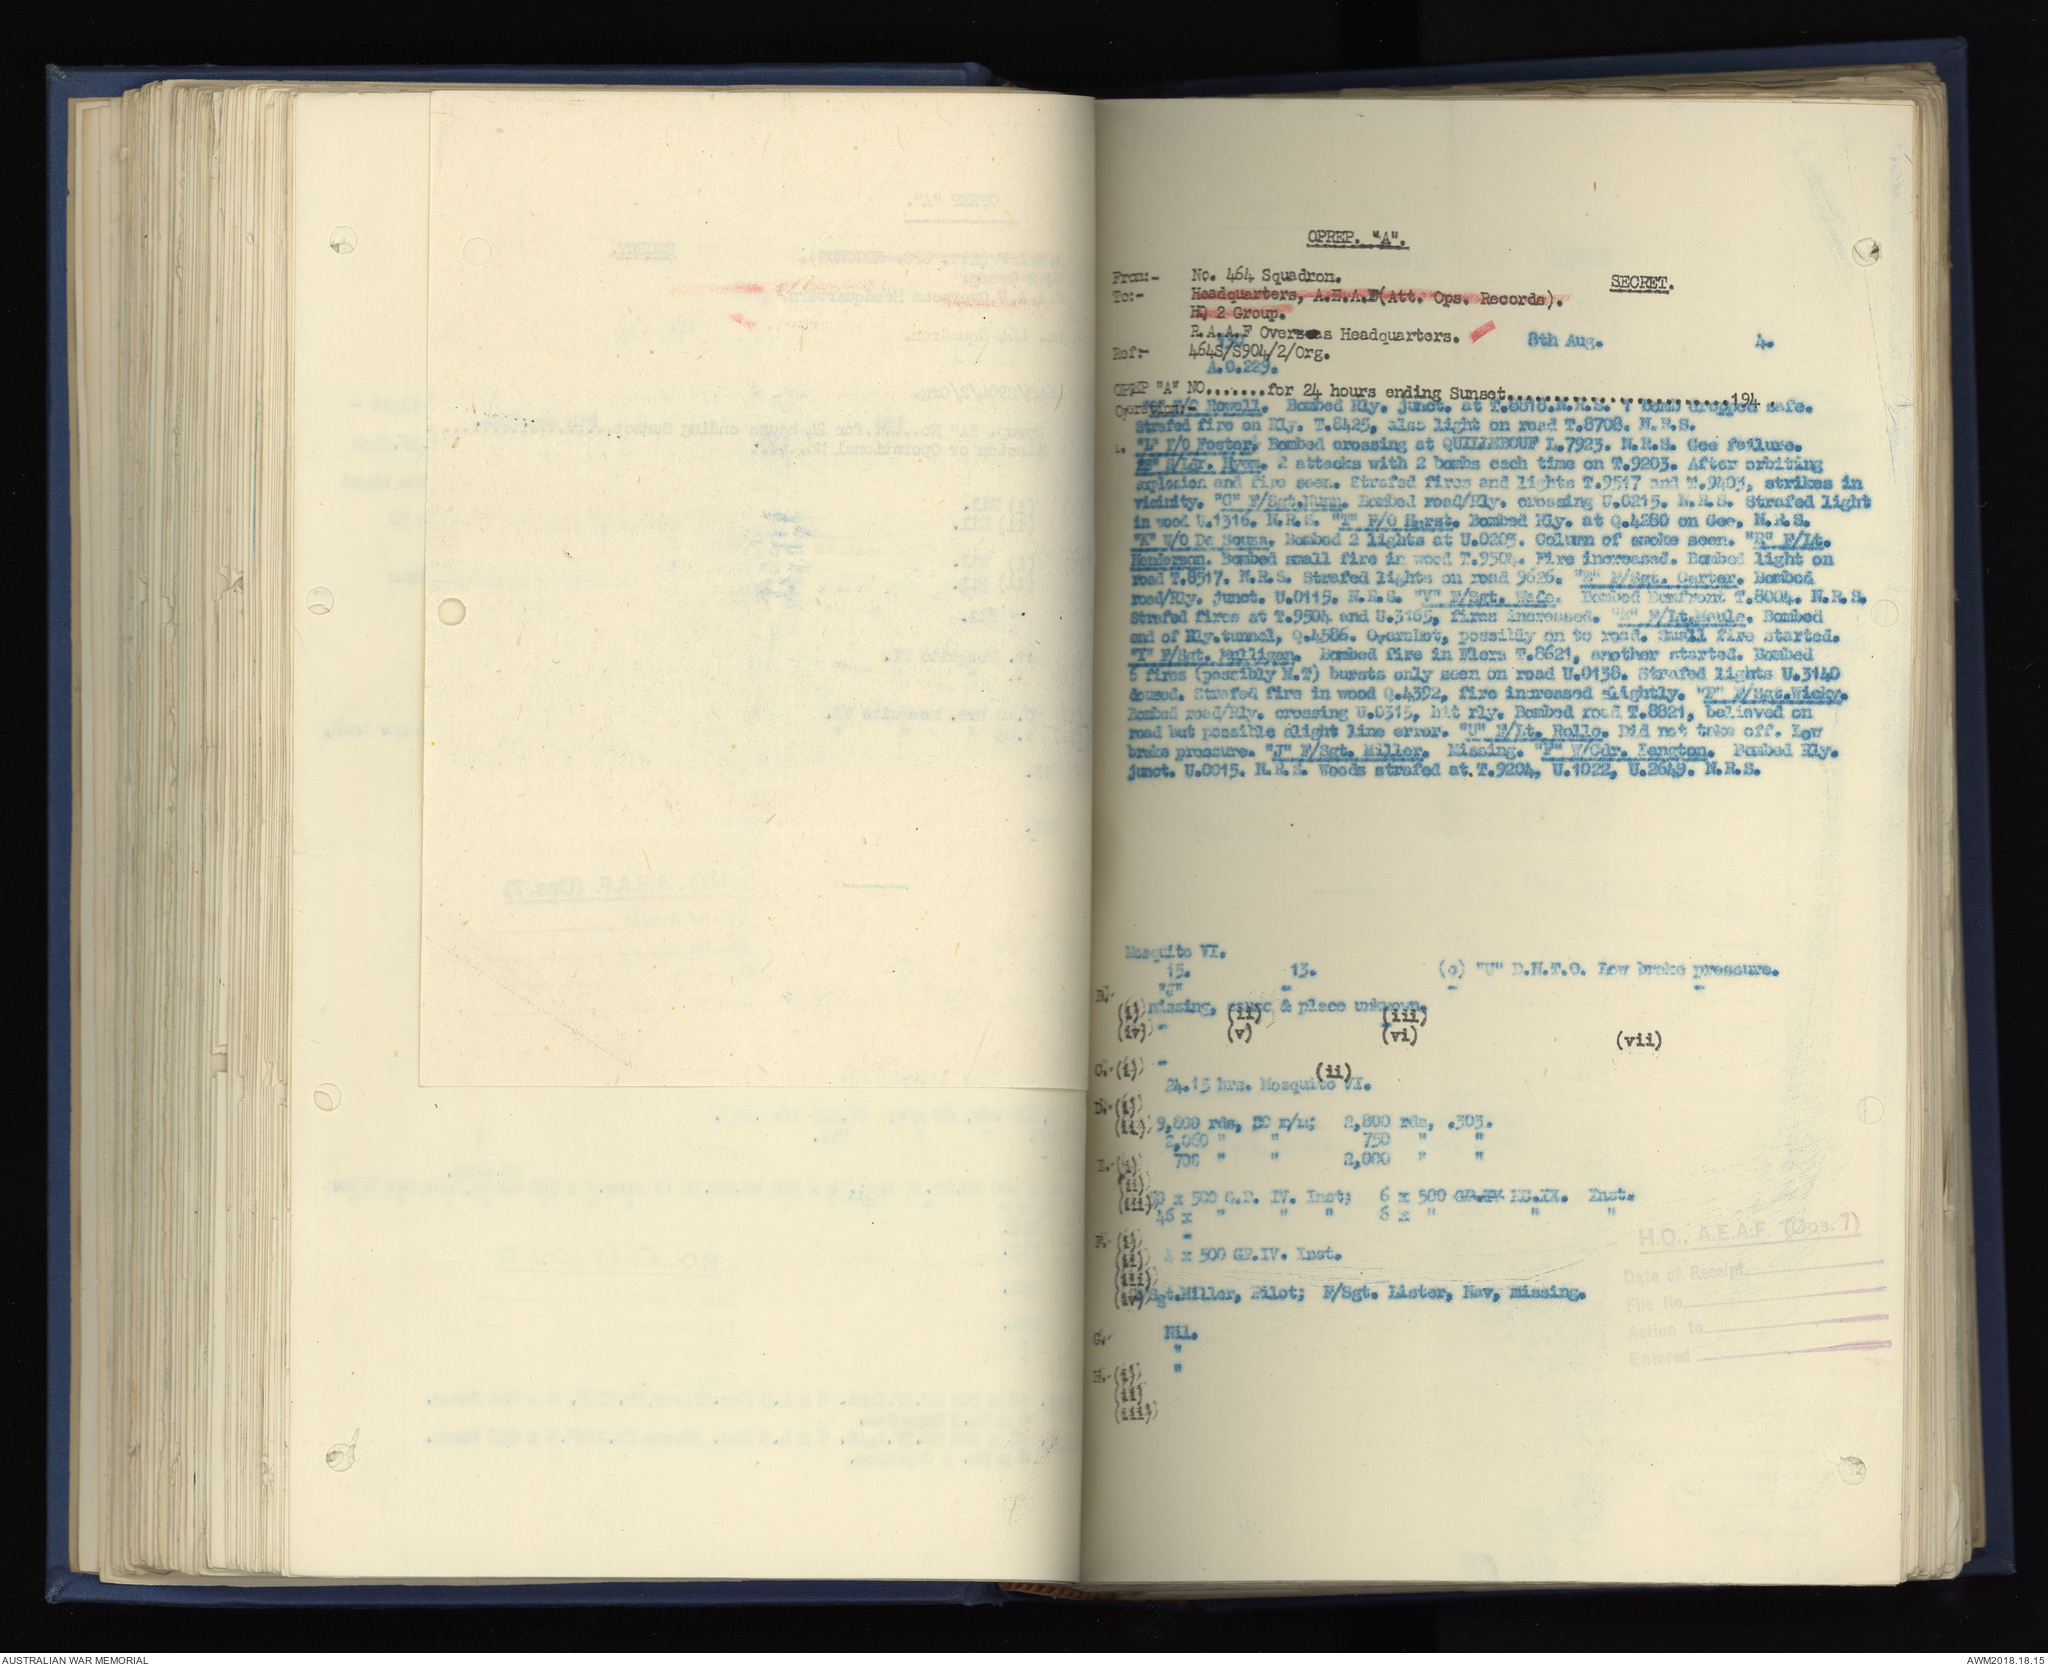 OPREP. "A".
From:- No. 464 Squadron.
SECRET.
To:- Headquarters, A.E.A.F(Att. Ops. Records).
HQ 2 Group.
R.A.A.F Overseas Headquarters.
8th Aug. 4.
Ref:- 464S/S904/2/Org.
A.O.229.
OPREP "A" NO.......for 24 hours ending Sunset........................194 .
Operation:- F/O Rowell. Bombed Rly. junct. at T.8618.N.R.S. bomb dropped safe.
Strafed fire on Rly. T.8425, also light on road T.8708. N.R.S.
"L" F/O Foster. Bombed crossing at QUILLEBOUF L.7923. N.R.S. Gee failure.
S/Ldr. Hyem. 2 attacks with 2 bombs each time on T.9203. After orbiting
explosion and fire seen. Strafed fires and lights T.9517 and T.9403, strikes in
vicinity. "C" F/Sgt.Nunn. Bombed road/Rly. crossing U.0215. N.R.S. Strafed light
in wood U.1316. N.R.S. "T" F/O Hurst. Bombed Rly. at Q.4280 on Gee, N.R.S.
"K" W/O Da Souza. Bombed 2 lights at U.0203. Column of smoke seen. "R" F/Lt.
Henderson. Bombed small fire in wood T.9504. Fire increased. Bombed light on
road T.8517. N.R.S. Strafed lights on road 9626. F/Sgt. Carter. Bombed
road/Rly. junct. U.0115. N.R.S. "V" F/Sgt. Bombed Domfront T.8004. N.R.S.
Strafed fires at T.9504 and U.3165, fires increased. F/Lt. Bombed
end of Rly.tunnel, Q.4586. Overshot, possibly on to road. Small fire started.
"Y" F/Sgt. Mulligan. Bombed fire in Flers T.8621, another started. Bombed
6 fires (possibly M.T) bursts only seen on road U.0138. Strafed lights U.3140
doused. Strafed fire in wood Q.4392, fire increased slightly. F/Sgt.
Bombed road/Rly. crossing U.0315, hit rly. Bombed road T.8821, believed on
road but possible slight line error. "U" F/Lt. Rollo. Did not take off. Low
brake pressure. "J" F/Sgt. Miller. Missing. "F" W/Cdr. Langton. Bombed Rly.
junct. U.0015. N.R.S. Woods strafed at T.9204, U.1022, U.2649. N.R.S.
Mosquito VI.
15. 13. (c) "U" D.N.T.O. Low brake pressure.
B.- "J" - - -
(i) missing, cause & place unknown. (ii) (iii)
(iv) - (v) (vi) (vii)
C.- (i) - (ii)
24.15 hrs. Mosquito VI.
D.- (i)
(ii) 9,800 rds, 20 m/m; 2,800 rds, .303.
2,060 " " 750 " "
E.- (i) 700 " " 2,000 " "
(ii)
(iii) x 500 G.P. IV. Inst; 6 x 500 GP.IV MC.IX. Inst.
46 x " " " 6 x " " "
F.- (i) -
(ii) 4 x 500 GP.IV. Inst.
(iii)
(iv) F/Sgt.Miller, Pilot; F/Sgt. Lister, Nav, missing.
G.- Nil.
"
H.- (i) "
(ii)
(iii)
H.Q., A.E.A.F. (Ops. 7)
Date of Receipt
File No
Action to
Entered
AUSTRALIAN WAR MEMORIAL
AWM2018.18.15